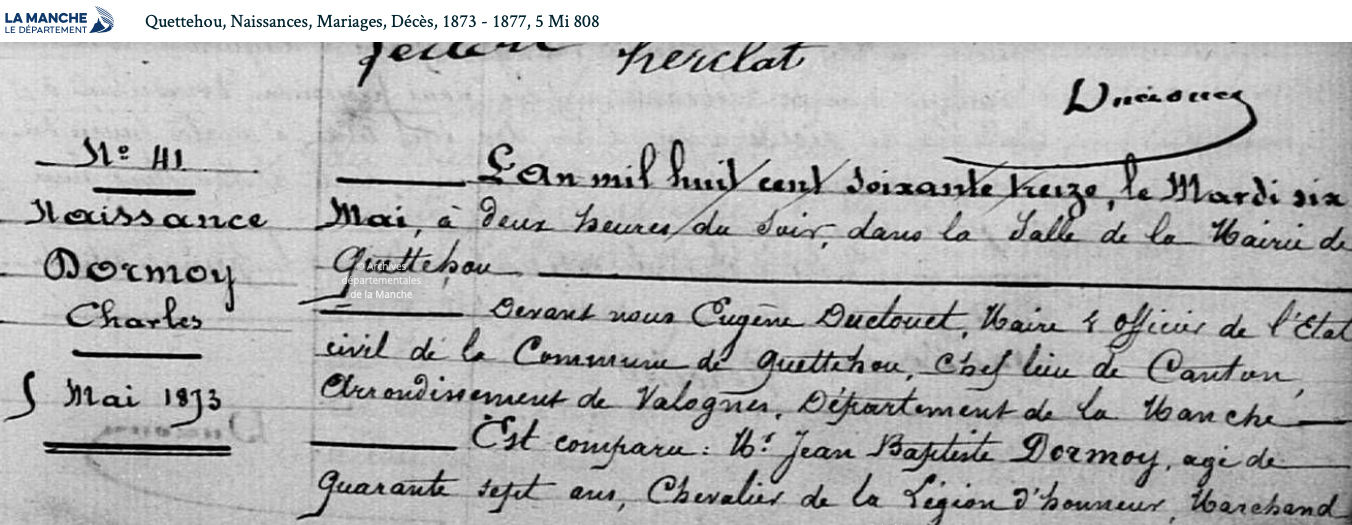 LA MANCHE
LE DÉPARTEMENT
Quettehou, Naissances, Mariages, Décès, 1873 - 1877, 5 Mi 808
herclat
Nº 41
Naissance
Dormoy
Charles
5 Mai 1873
L'An mil huit cent soixante treize, le Mardi six
Mai, à deux heures du soir, dans la Salle de la Mairie de
Quettehou
© Archives
départementales
de la Manche
Devant nous Eugène Ductouet, Maire & officier de l'Etat
civil de la Commune de Quettehou, Chef lieu de Canton,
Arrondissement de Valognes, Département de la Manche
Est comparu : Mr Jean Baptiste Dormoy, agé de
Quarante sept ans, Chevalier de la Légion d'honneur, Marchand